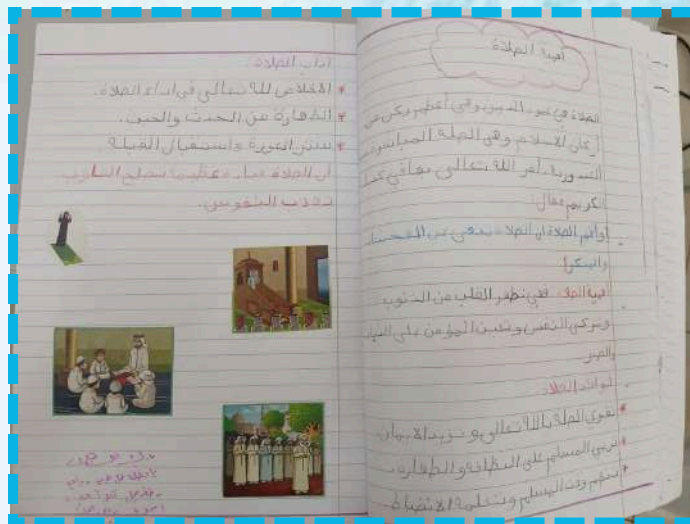 أهمية الصلاة
الصلاة هي عمود الدين وهي أعظم ركن من
أركان الإسلام وهي الصلة المباشرة
أمر الله تعالى بها في كتابه
الكريم فقال:
(وأقم الصلاة إن الصلاة تنهى عن الفحشاء
والمنكر)
أهمية الصلاة: فهي تطهر القلب من الذنوب
وتزكي النفس وتعين المؤمن على
والصبر
فوائد الصلاة
* تقوي الصلة بالله تعالى وتزيد الإيمان
* تربي المسلم على النظافة والطهارة.
* تنظم وقت المسلم وتعلمه الانضباط
آداب الصلاة:
* الإخلاص لله تعالى في أداء الصلاة.
* الطهارة من الحدث والخبث.
* ستر العورة واستقبال القبلة
إن الصلاة عبادة عظيمة تصلح القلوب
تهذب النفوس.